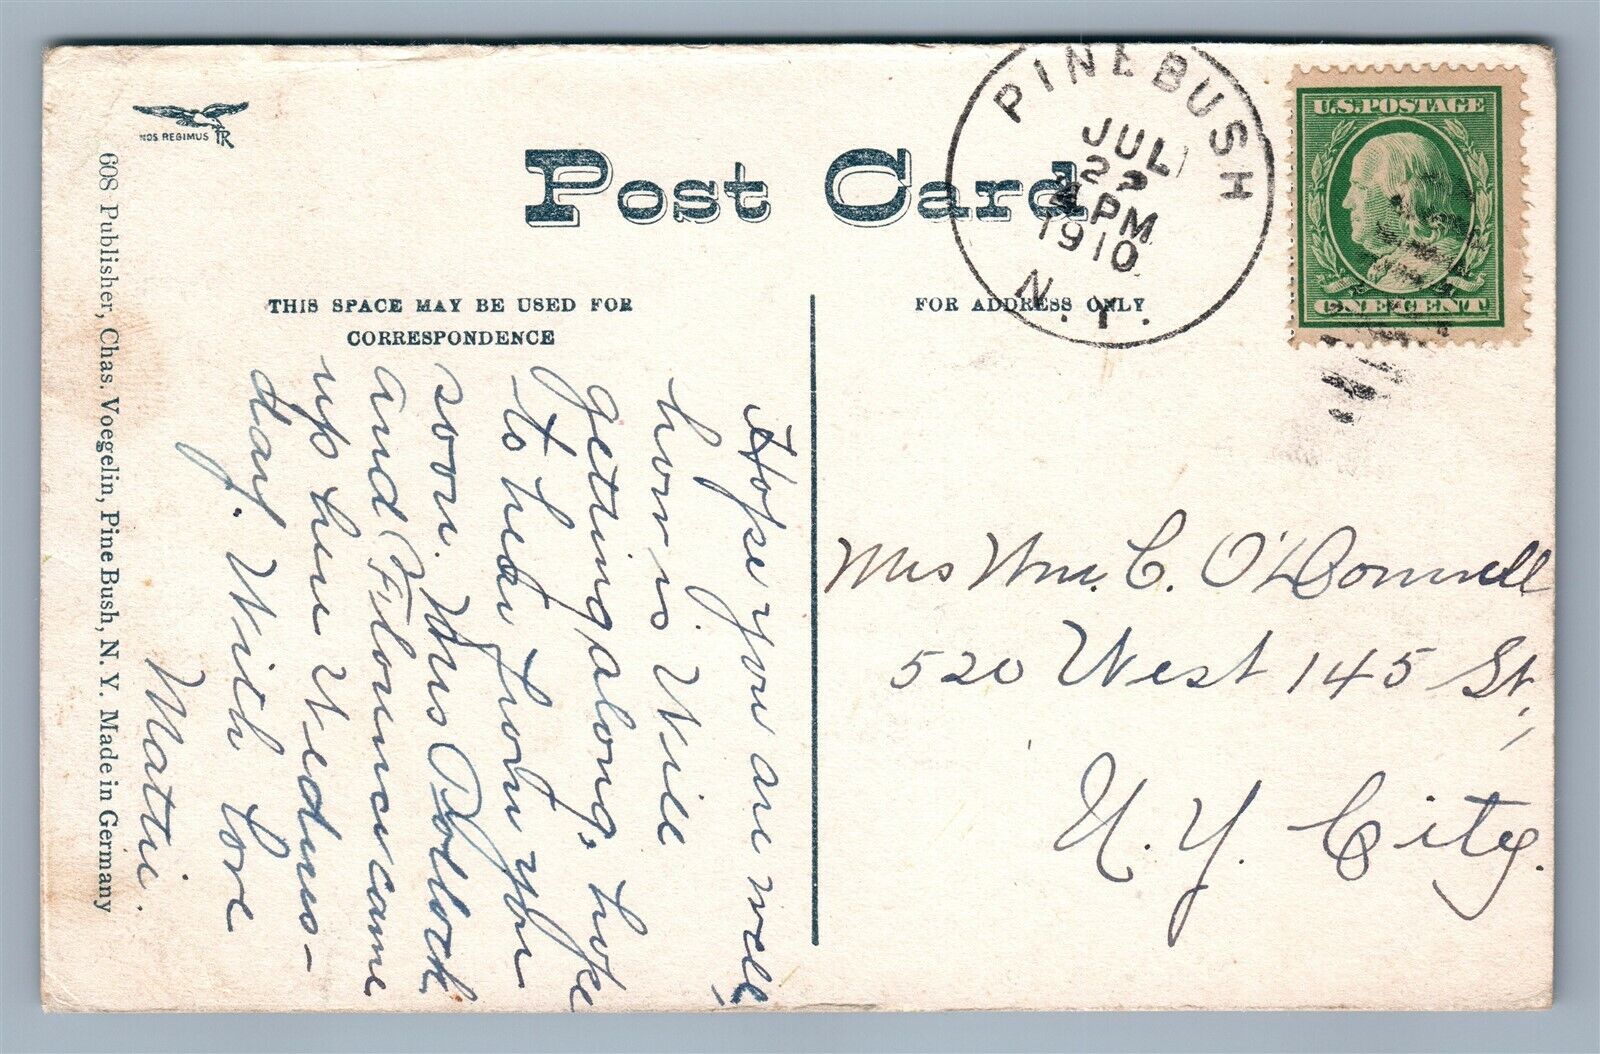 NOS REGIMUS TR
Post Card
THIS SPACE MAY BE USED FOR
CORRESPONDENCE
FOR ADDRESS ONLY
PINE BUSH
JUL
22
4 PM
1910
N.Y.
U.S. POSTAGE
ONE CENT
Hope you are well,
how is Will
getting along, hope
to hear from you
soon. Mrs Pollock
and Florence came
up here Wednes-
day. With Love
Mattie.
Mrs Wm. C. O'Connell
520 West 145 St,
N. Y. City.
608 Publisher, Chas. Voegelin, Pine Bush, N. Y. Made in Germany